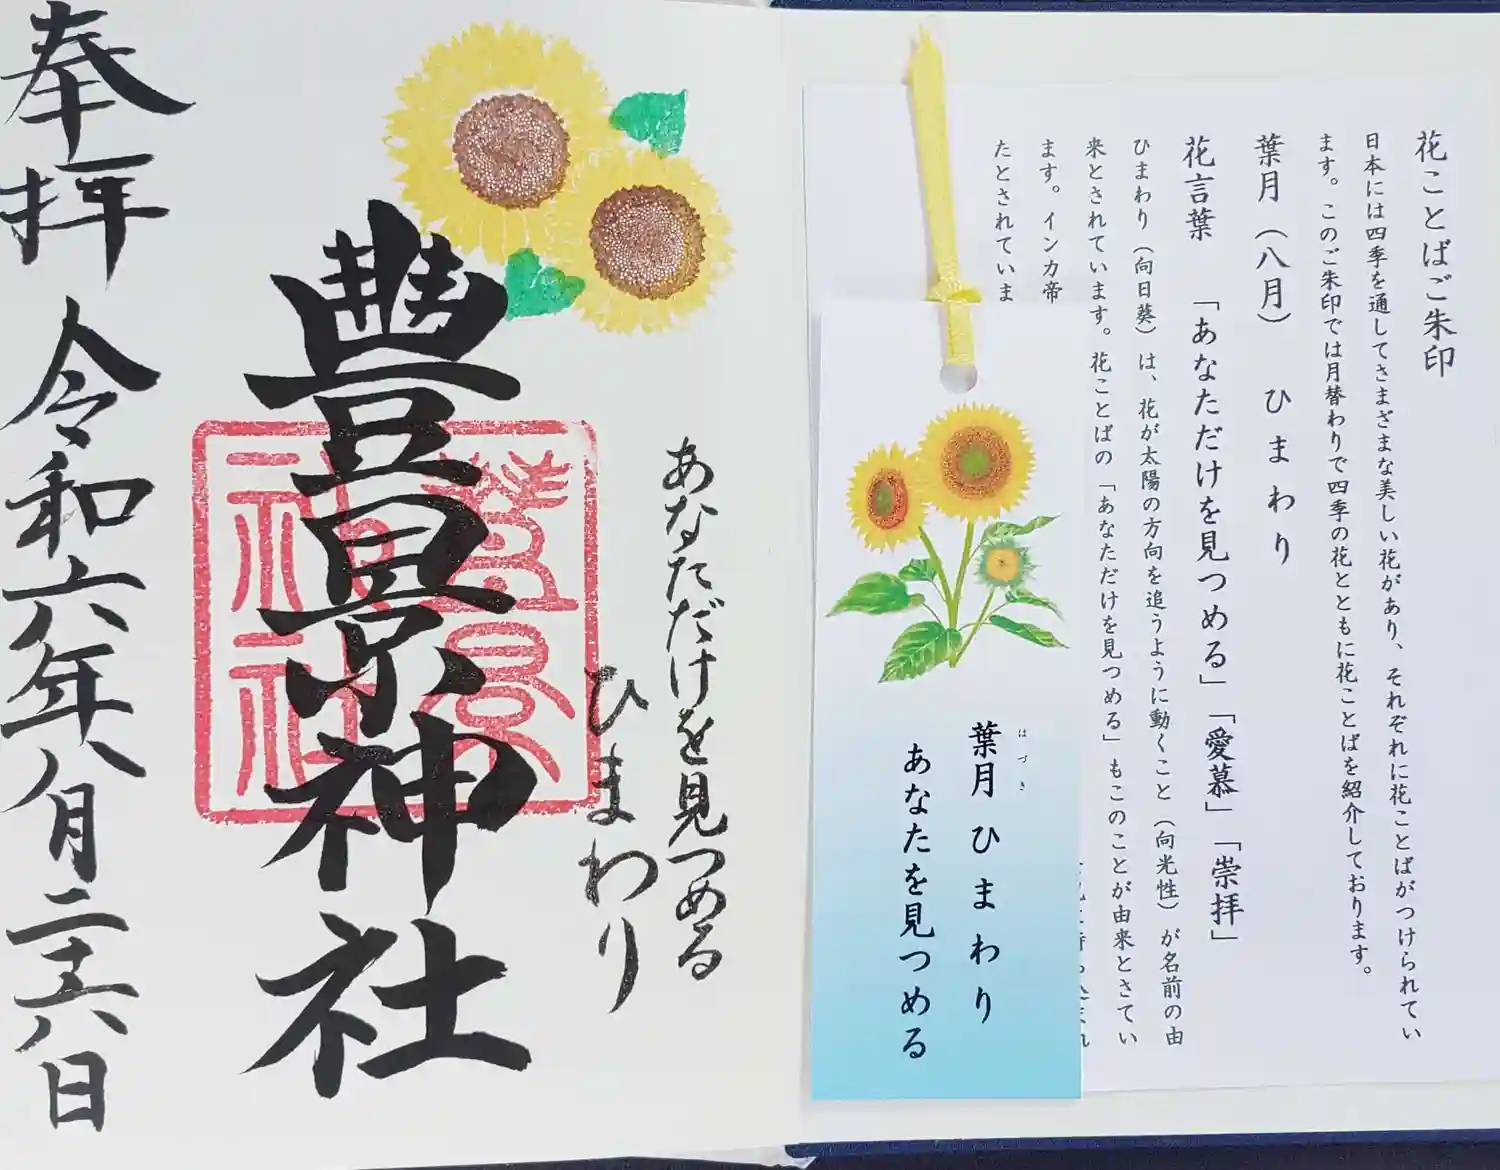 花ことばご朱印
日本には四季を通してさまざまな美しい花があり、それぞれに花ことばがつけられてい
ます。このご朱印では月替わりで四季の花とともに花ことばを紹介しております。
葉月（八月）　ひまわり
花言葉　「あなただけを見つめる」「愛慕」「崇拝」
ひまわり（向日葵）は、花が太陽の方向を追うように動くこと（向光性）が名前の由
来とされています。花ことばの「あなただけを見つめる」もこのことが由来とさてい
ます。インカ帝
たとされていま
はづき
葉月 ひまわり
あなたを見つめる
あなただけを見つめる
ひまわり
豐景神社
豐景
神社
奉拝 令和六年八月二十六日